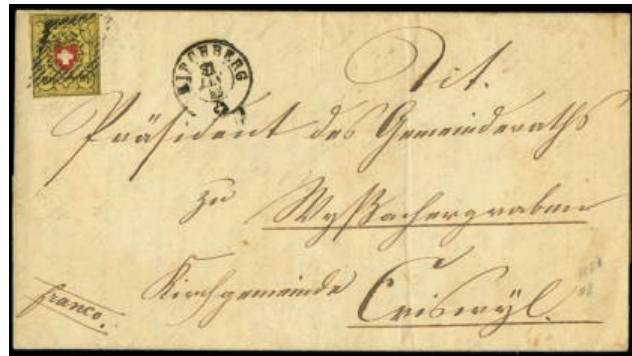 KIRCHBERG
21
Tit.
Präsident des Gemeinderaths
zu Wyßachengraben
Kirchgemeinde Eriswyl.
franco.